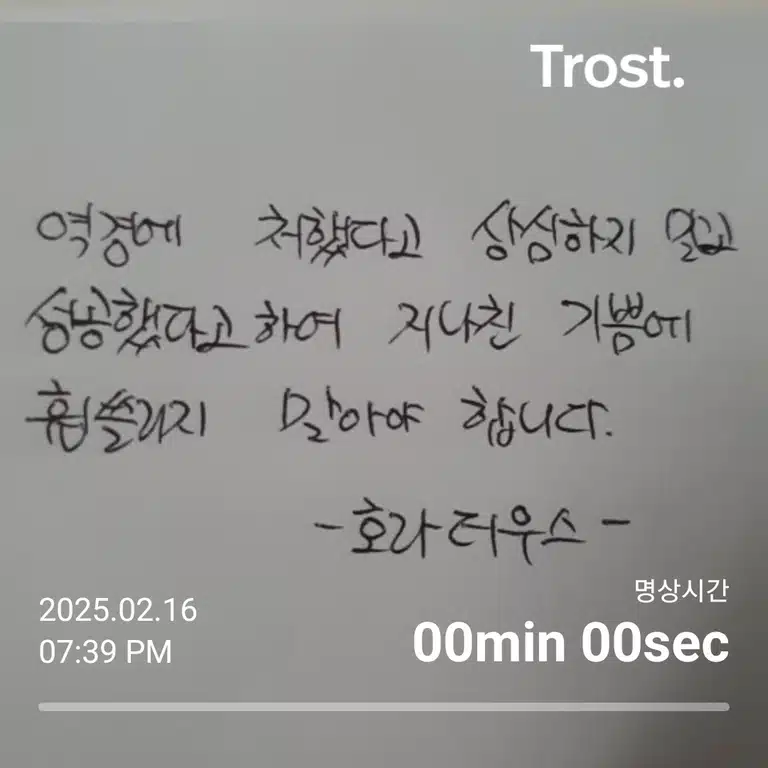 Trost.
역경에 처했다고 상심하지 말고
성공했다고 하여 지나친 기쁨에
휩쓸리지 말아야 합니다.
-호라티우스-
명상시간
2025.02.16
00min 00sec
07:39 PM